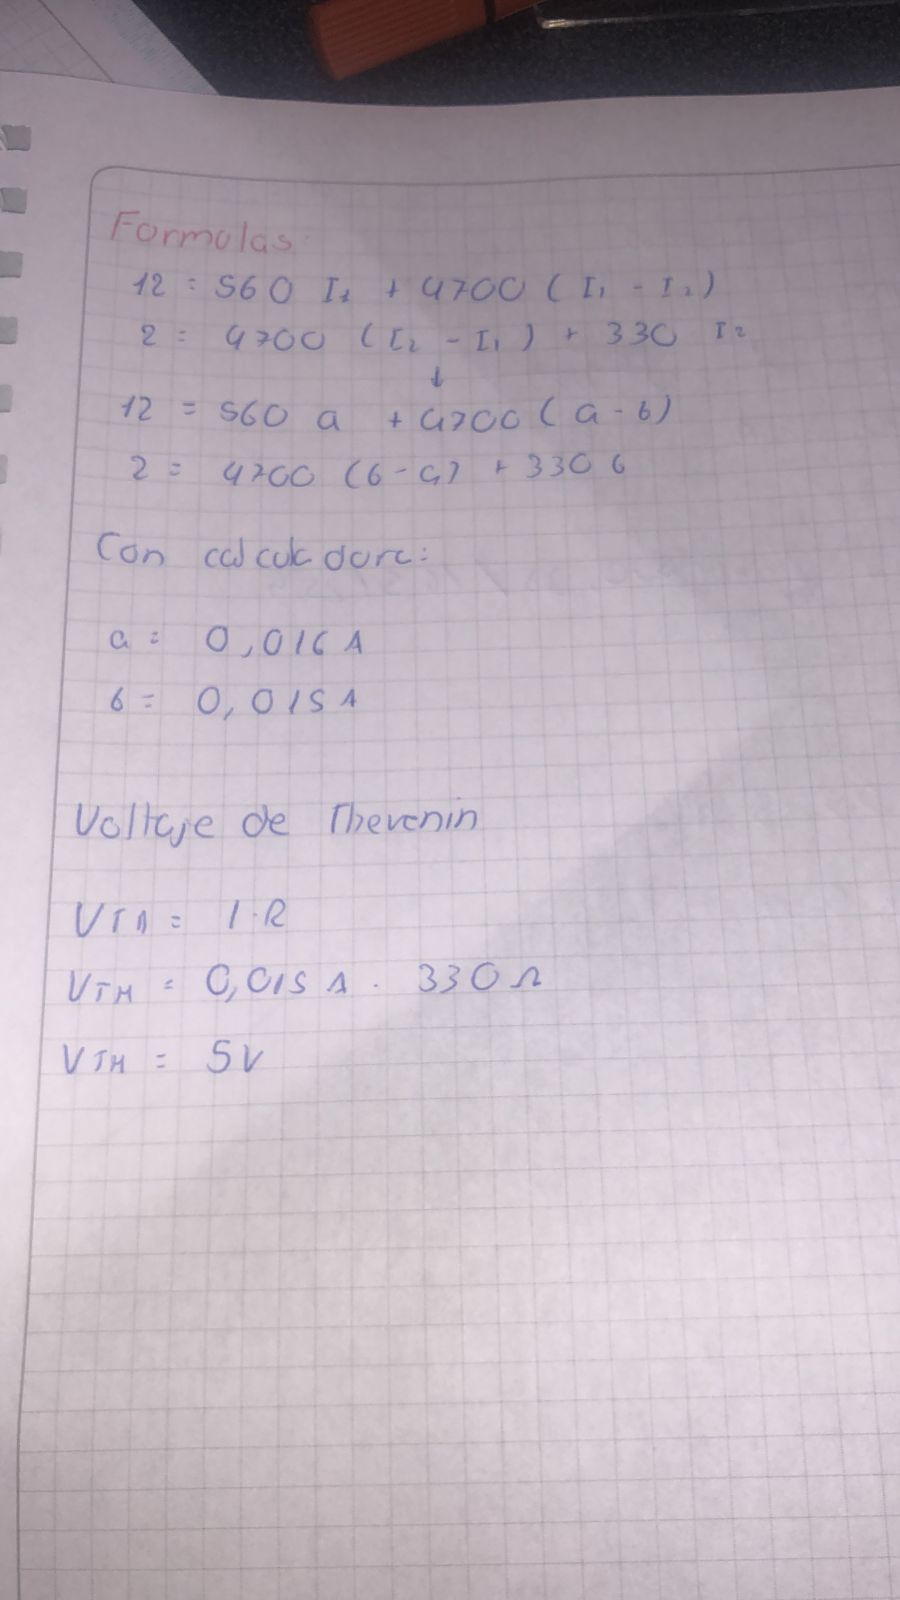 Formulas:
12 = 560 I1 + 4700 ( I1 - I2)
2 = 4700 (I2 - I1) + 330 I2
↓
12 = 560 a + 4700 ( a - b)
2 = 4700 (b - a) + 330 b
Con calculadora:
a = 0,016 A
b = 0,015 A
Voltaje de Thevenin
VTH = I·R
VTH = 0,015 A . 330 Ω
VTH = 5V